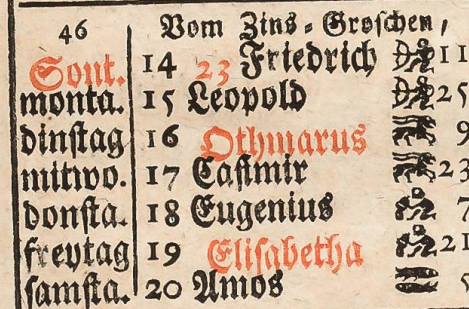 46 Vom Zins-Groschen,
Sont. 14 23 Friedrich 11
monta. 15 Leopold 25
dinstag 16 Othmarus 9
mitwo. 17 Casimir 23
donsta. 18 Eugenius 7
freytag 19 Elisabetha 21
samsta. 20 Amos 5